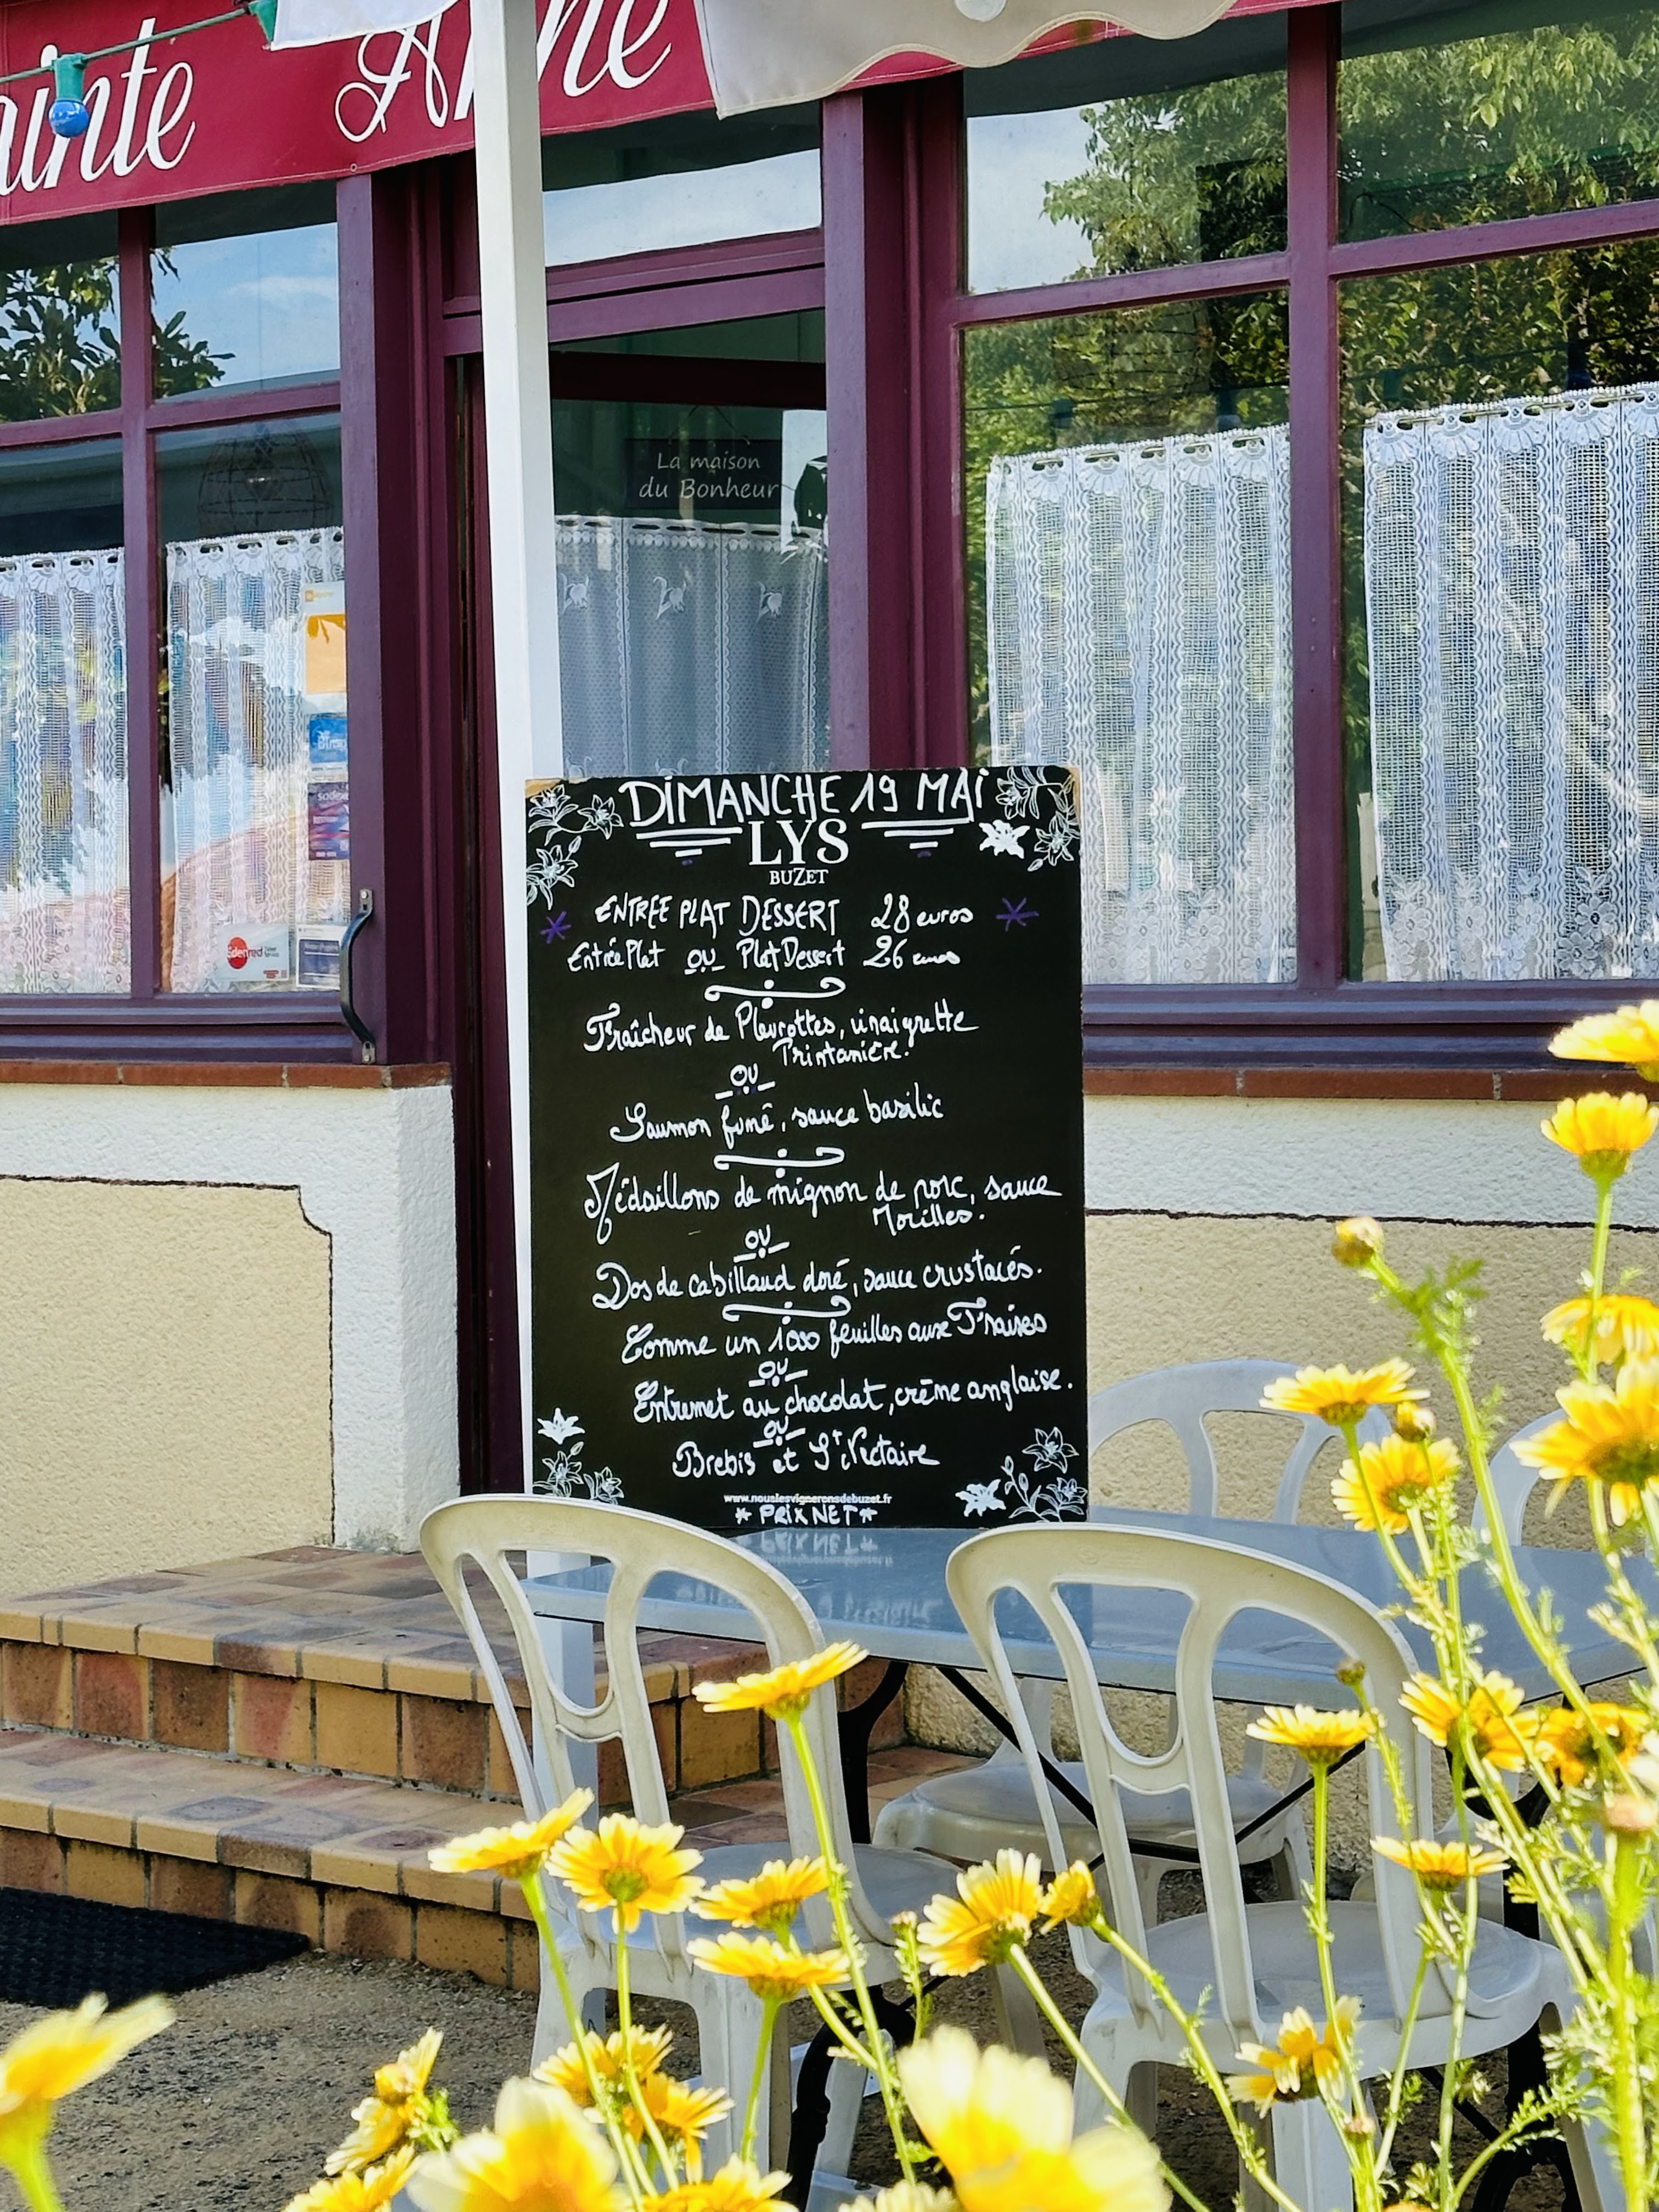 ainte Anne
La maison
du Bonheur
DIMANCHE 19 MAI
LYS
BUZET
ENTREE PLAT DESSERT 28 euros
Entrée Plat OU Plat Dessert 26 euros
Fraîcheur de Pleurottes, vinaigrette
Printanière.
OU
Saumon fumé, sauce basilic
Médaillons de mignon de porc, sauce
Morilles.
OU
Dos de cabillaud doré, sauce crustacés.
Comme un 1000 feuilles aux Fraises
OU
Entremet au chocolat, crème anglaise.
OU
Brebis et St Nectaire
www.nouslesvigneronsdebuzet.fr
* PRIX NET *
Edenred